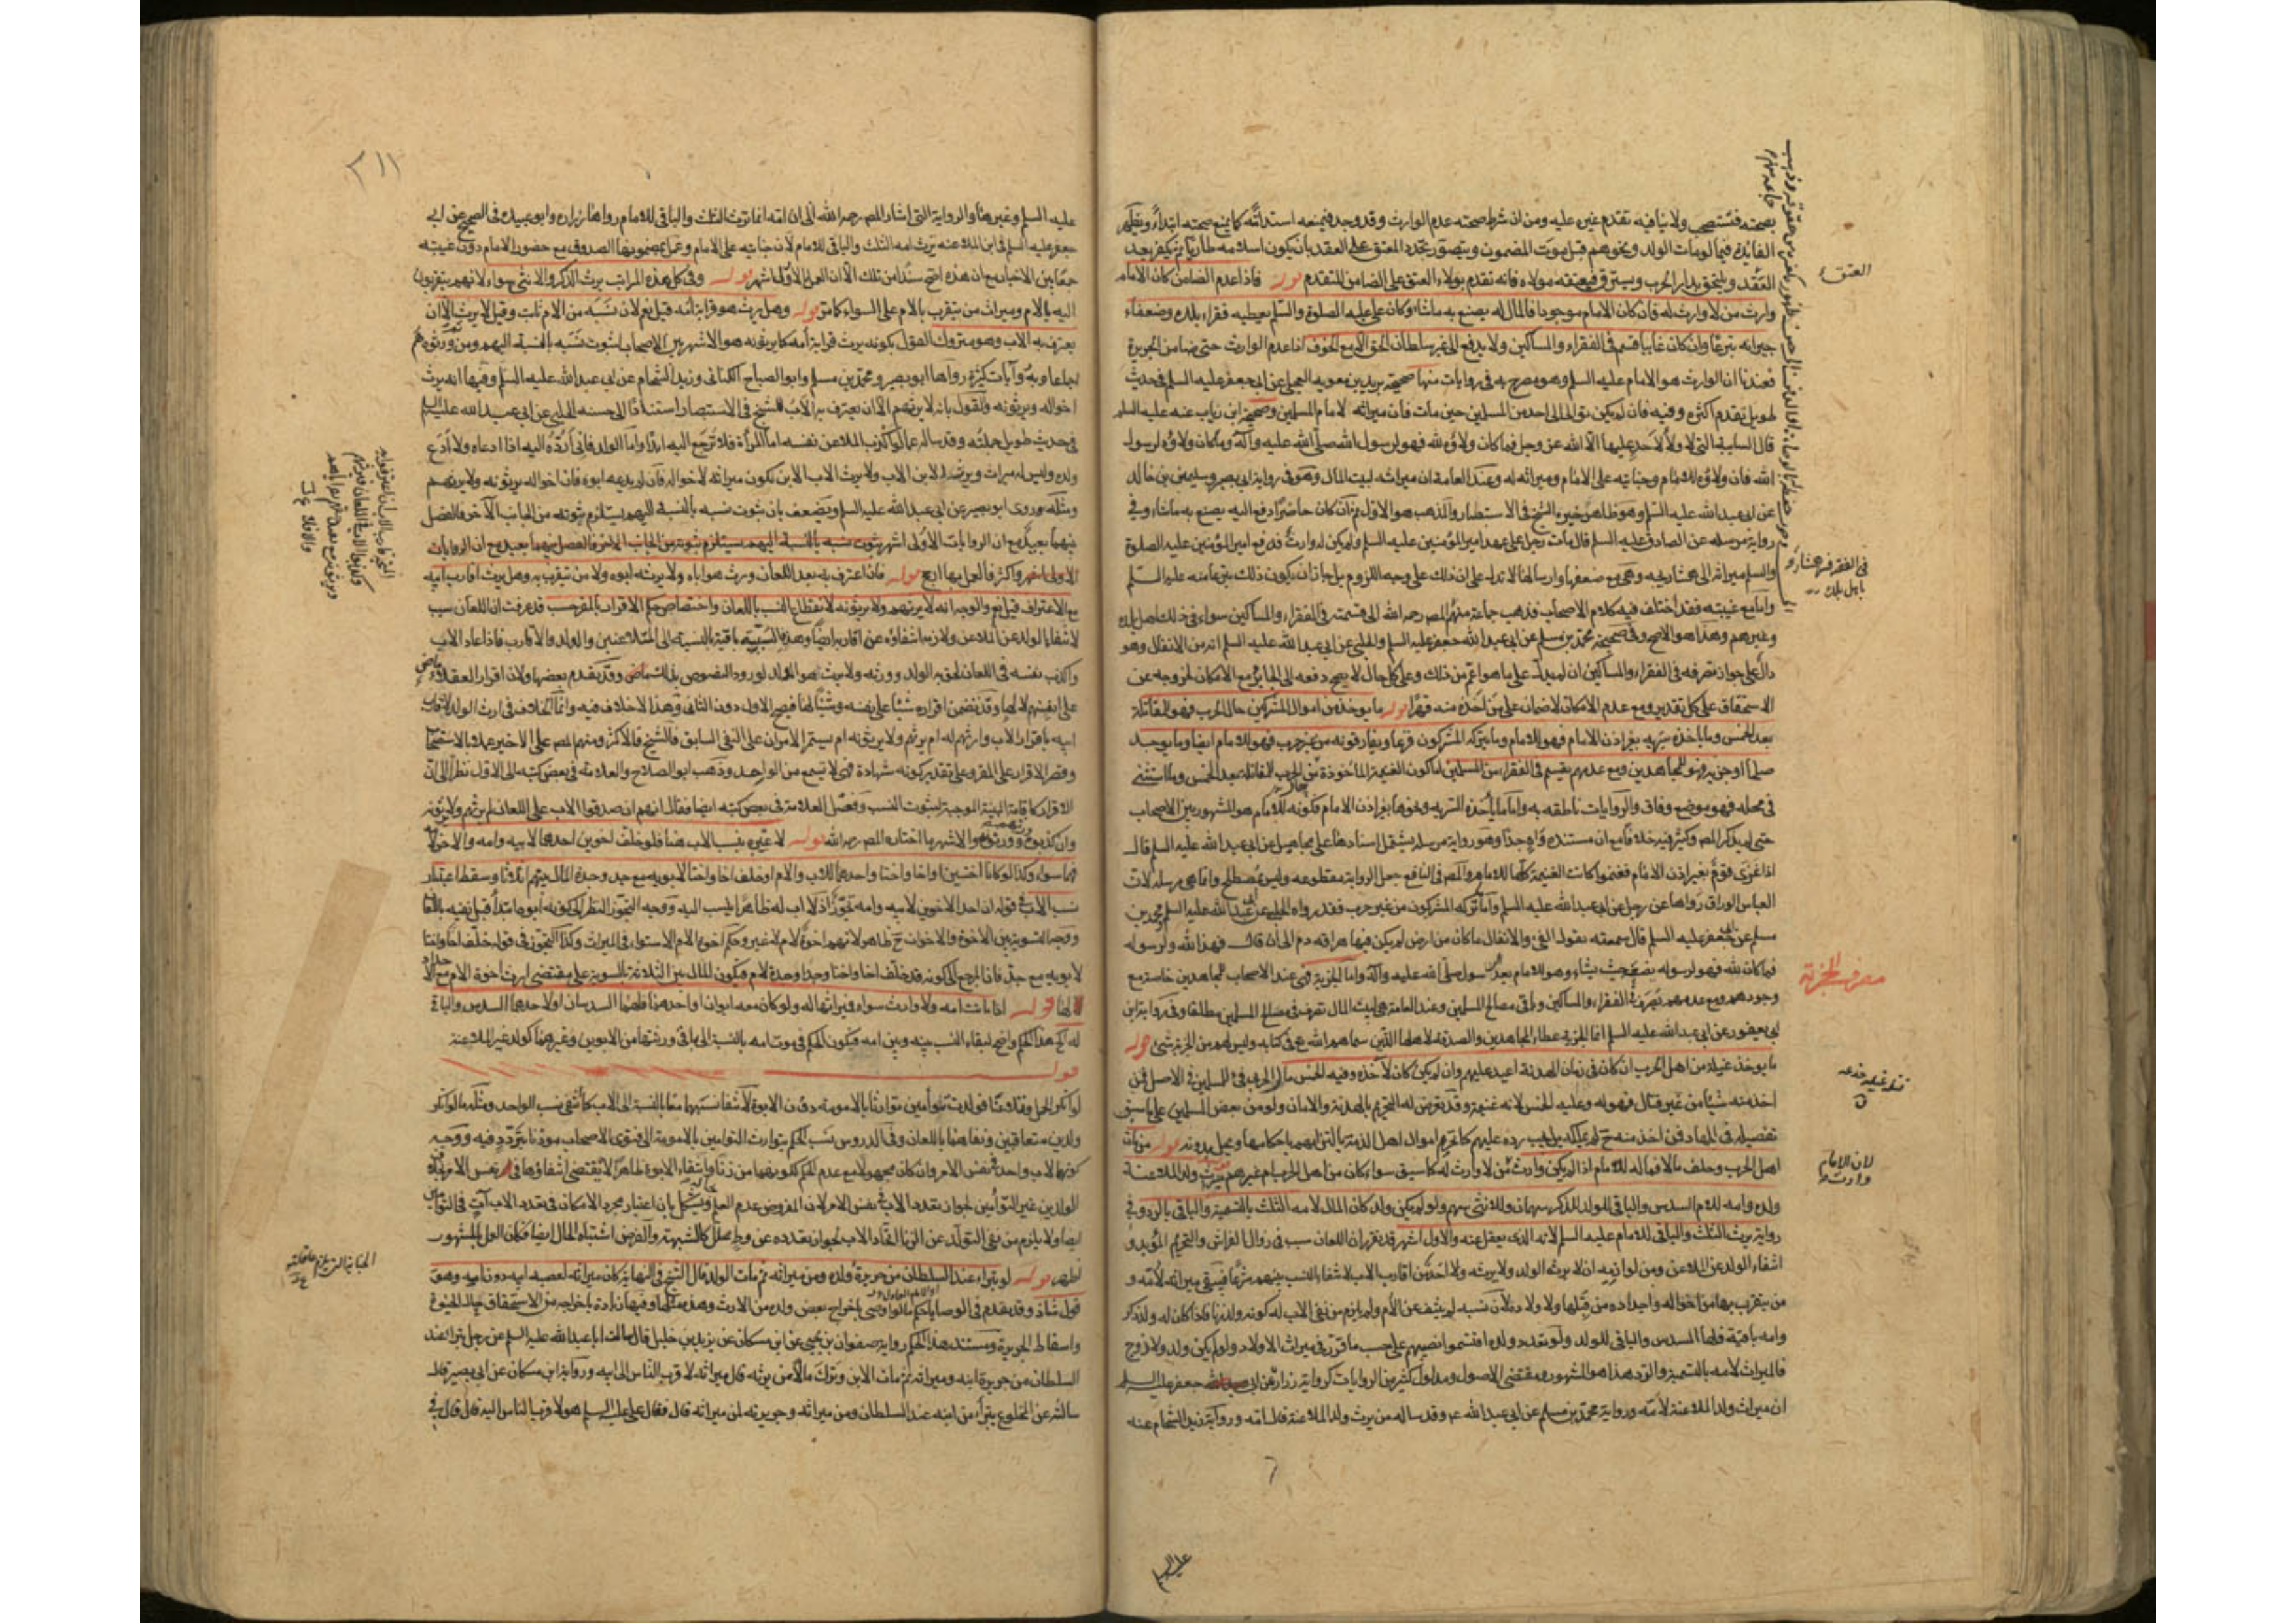 بصحته فتستصحب ولا ينافيه تقدم غيره عليه ومن ان شرط صحته عدم الوارث وقد وجد فيمنعه استدامة كما يمنع صحته ابتداء ويظهر
الفايدة فيما لو مات الولد ونحوهم قبل موت المضمون ويتصور تجدد المعتق على العقد بان يكون اسلامه طاريا ثم يكفر بعد
العقد ويلتحق بدار الحرب ويسترق فيعتقه مولاه فانه تقدم بولاء العتق على الضامن المتقدم قوله فاذا عدم الضامن كان الامام
وارث من لا وارث له فان كان الامام موجودا فالمال له يصنع به ما شاء وكان علي عليه الصلوة والسلم يعطيه فقراء بلده وضعفاء
جيرانه تبرعا وان كان غايبا قسم في الفقراء والمساكين ولا يدفع الى غير سلطان الحق الا مع الخوف اذا عدم الوارث حتى ضامن الجريرة
فعندنا ان الوارث هو الامام عليه السلم وهو مصرح به في روايات منها صحيحة بريد بن معويه العجلي عن ابي جعفر عليه السلم في حديث
طويل تقدم اكثره وفيه فان لم يكن توالى الى احد من المسلمين حتى مات فان ميراثه لامام المسلمين وصحيحة ابن رياب عنه عليه السلم
قال السايبة التي لا ولاء لاحد عليها الا الله عز وجل فما كان ولاؤه لله فهو لرسول الله صلى الله عليه وآله وما كان ولاؤه لرسول
الله فان ولاؤه للامام وجنايته على الامام وميراثه له وعند العامة ان ميراثه لبيت المال وهو في رواية ابي بصير وسليمن بن خالد
عن ابي عبد الله عليه السلم وهو ظاهر خيرة الشيخ في الاستبصار والمذهب هو الاول ثم ان كان حاضرا دفع اليه يصنع به ما شاء وفي
رواية مرسله عن الصادق عليه السلم قال مات رجل على عهد امير المؤمنين عليه السلم ولم يكن له وارث فدفع امير المؤمنين عليه الصلوة
والسلم ميراثه الى همشاريجه وهي مع ضعفها وارسالها لا تدل على ان ذلك على وجه اللزوم بل جاز ان يكون ذلك تبرعا منه عليه السلم
واما مع غيبته فقد اختلف فيه كلام الاصحاب فذهب جماعة منهم المصر رحمه الله الى قسمته في الفقراء والمساكين سواء في ذلك اهل بلده
وغيرهم وهذا هو الاصح وفي صحيحة محمد بن مسلم عن ابي عبد الله جعفر عليه السلم والحلبي عن ابي عبد الله عليه السلم انه من الانفال وهو
دال على جواز تصرفه في الفقراء والمساكين ان لم يدل على ما هو اعم من ذلك وعلى كل حال لا يصح دفعه الى الجاير مع الامكان لخروجه عن
الاستحقاق على كل تقدير ومع عدم الامكان لا ضمان على من اخذه منه قهرا قوله ما يوخذ من اموال المشركين حال الحرب فهو للمقاتلة
بعد الخمس وما ياخذه سريه بغير اذن الامام فهو للامام وما يتركه المشركون فزعا ويفارقونه من غير حرب فهو للامام ايضا وما يوخذ
صلحا او جزية فهو للمجاهدين ومع عدمهم يقسم في الفقراء من المسلمين اما كون الغنيمة الماخوذة من الحرب للمقاتلة بعد الخمس وما استثنى
في محله فهو موضع وفاق والروايات ناطقه به واما ما ياخذه السريه ونحوها بغير اذن الامام فكونه للامام هو المشهور بين الاصحاب
حتى لم يذكر المصر وكثير فيه خلافا مع ان مستنده واه جدا وهو رواية مرسلة يشتمل اسنادها على مجاهيل عن ابي عبد الله عليه السلم قال
اذا غزى قوم بغير اذن الامام فغنموا كانت الغنيمة كلها للامام والمصر في النافع جعل الرواية مقطوعه وليس بمصطلح وانما هي مرسله لان
العباس الوراق رواها عن رجل عن ابي عبد الله عليه السلم واما تركه المشركون من غير حرب فقد رواه الحلبي عن ابي عبد الله عليه السلم ومحمد بن
مسلم عن ابي جعفر عليه السلم قال سمعته يقول الفئ والانفال ما كان من ارض لم يكن فيها هراقه دم الى ان قال فهذا لله ولرسوله
فما كان لله فهو لرسوله يضعه حيث يشاء وهو للامام بعد الرسول صلى الله عليه وآله واما الجزية فهي عند الاصحاب للمجاهدين خاصة مع
وجودهم ومع عدمهم تصرف في الفقراء والمساكين وباقي مصالح المسلمين وعند العامة هي لبيت المال تصرف في مصالح المسلمين مطلقا وفي رواية ابن
ابي يعفور عن ابي عبد الله عليه السلم انما الجزية عطاء المجاهدين والصدقة لاهلها الذين سماهم الله في كتابه وليس لهم من الجزية شئ قوله
ما يوخذ غيلة من اهل الحرب ان كان في زمان الهدنة اعيد عليهم وان لم يكن كان لآخذه وفيه الخمس مال الحربي فئ للمسلمين في الاصل فمن
اخذ منه شيئا من غير قتال فهو له وعليه الخمس لانه غنيمة وقد يعرض له التحريم بالهدنة والامان ولو من بعض المسلمين على ما سبق
تفصيله في الجهاد فمن اخذ منه ح لم يملكه بل يجب رده عليهم كما تحرم اموال اهل الذمة بالتزامهم باحكامها ويحل بدونه قوله من مات
اهل الحرب وخلف مالا فماله للامام اذا لم يكن وارث من لا وارث له كما سبق سواء كان من اهل الحرب ام غيرهم قوله ميراث ولد الملاعنة
ولده وامه للام السدس والباقي للولد للذكر سهمان وللانثى سهم ولو لم يكن ولد كان المال لامه الثلث بالتسمية والباقي بالرد وفي
رواية يرث الثلث والباقي للامام عليه السلم لانه الذي يعقل عنه والاول اشهر قد تقرر ان اللعان سبب في زوال الفراش والتحريم المؤبد و
انتفاء الولد عن الملاعن ومن لوازمه ان لا يرث الولد ولا يرثه ولا احد من اقارب الاب لانتفاء النسب بينهم شرعا فيبقى ميراثه لامه و
من يتقرب بها من اخواله واجداده من قبلها ولاولاده لان نسبه لم ينتف عن الام ولم يلزم من نفي الاب له كونه ولد زنا فاذا كان له ولد ذكر
وامه باقية فلها السدس والباقي للولد ولو تعدد ولده اقتسموا نصيبهم على حسب ما قرر في ميراث الاولاد ولو لم يكن ولد ولا زوج
فالميراث لامه بالتسمية والرد هذا هو المشهور ومقتضى الاصول ومدلول كثير من الروايات كرواية زرارة عن ابي جعفر عليه السلم
ان ميراث ولد الملاعنة لامه ورواية محمد بن مسلم عن ابي عبد الله ع وقد ساله من يرث ولد الملاعنة قال امه ورواية زيد الشحام عنه
العتق
في الفقر في همشاره
باهل بلده
مصرف الجزية
لان الامام
وارث
٢١١
عليه السلم وغيرها والرواية التي اشار المصر رحمه الله الى ان امه انما ترث الثلث والباقي للامام رواها زراره وابو عبيده في الصحيح عن ابي
جعفر عليه السلم في ابن الملاعنه يرث امه الثلث والباقي للامام لان جنايته على الامام وعمل بمضمونها الصدوق مع حضور الامام دون غيبته
جمعا بين الاخبار مع ان هذه اصح سندا من تلك الا ان العمل الاول اشهر قوله وفي كل هذه المراتب يرث الذكر والانثى سواء لانهم يتقربون
اليه بالام وميراث من يتقرب بالام على السواء كما مر قوله وهل يرث هو قرابة امه قيل نعم لان نسبه من الام ثابت وقيل لا يرث الا ان
يعترف به الاب وهو متروك القول بكونه يرث قرابة امه كما يرثونه هو الاشهر بين الاصحاب لثبوت نسبه بالنسبة اليهم ومن ثم ورثوه هم
اجماعا وبه روايات كثيرة رواها ابو بصير ومحمد بن مسلم وابو الصباح الكناني وزيد الشحام عن ابي عبد الله عليه السلم وفيها انه يرث
اخواله ويرثونه والقول بانه لا يرثهم الا ان يعترف به الاب للشيخ في الاستبصار استنادا الى حسنه الحلبي عن ابي عبد الله عليه السلم
في حديث طويل جملته وقد ساله عما لو اكذب الملاعن نفسه اما المرأة فلا ترجع اليه ابدا واما الولد فاني ارده اليه اذا ادعاه ولا ادع
ولده وليس له ميراث ويرث الابن الاب ولا يرث الاب الابن يكون ميراثه لاخواله فان لم يدعه ابوه فان اخواله يرثونه ولا يرثهم
ومثله روى ابو بصير عن ابي عبد الله عليه السلم ويضعف بان ثبوت نسبه بالنسبة اليهم يستلزم ثبوته من الجانب الآخر فالفصل
بينهما بعيد مع ان الروايات الاولى اشهر ثبوت نسبه بالنسبة اليهم يستلزم ثبوته من الجانب الآخر فالفصل بينهما بعيد مع ان الروايات
الاولى اشهر واكثر فالعمل بها ارجح قوله فان اعترف به بعد اللعان ورث هو اباه ولا يرثه ابوه ولا من يتقرب به وهل يرث اقارب ابيه
مع الاعتراف قيل نعم والوجه انه لا يرثهم ولا يرثونه لانقطاع النسب باللعان واختصاص حكم الاقرار بالمقر حسب قد عرفت ان اللعان سبب
لانتفاء الولد عن الملاعن ولازمه انتفاؤه عن اقاربه ايضا وهذه السببية باقية بالنسبة الى المتلاعنين والولد والاقارب فاذا عاد الاب
واكذب نفسه في اللعان لحق به الولد وورثه ولا يرث هو الولد لورود النصوص بذلك وقد تقدم بعضها ولان اقرار العقلاء ماض
على انفسهم لا لها وقد تضمن اقراره شيئا على نفسه وشيئا لها فيصح الاول دون الثاني وهذا الاخلاف فيه وانما الخلاف في ارث الولد لاقارب
ابيه باقرار الاب وارثهم له ام يرثهم ولا يرثونه ام يستمر الامران على النفي السابق فالشيخ فالاكثر ومنهم المصر على الاخير عملا بالاستصحاب
وقصر الاقرار على المقر وعلى تقدير كونه شهادة فهي لا تسمع من الواحد وذهب ابو الصلاح والعلامة في بعض كتبه الى الاول نظرا الى ان
الاقرار كاقامة البينة الموجبة لثبوت النسب وفصل العلامة في بعض كتبه ايضا فقال انهم ان صدقوا الاب على اللعان لم يرثهم ولا يرثونه
وان كذبوه ورثهم وورثوه والاشهر ما اختاره المصر رحمه الله قوله لا عبرة بنسب الاب هنا فلو خلف اخوين احدهما لابيه وامه والآخر لامه
فهما سواء وكذا لو كانا اختين او اخا واختا واحدهما للاب والام او خلف اخا واختا لابويه مع جد وحدة المال بينهم اثلاثا وسقط اعتبار
نسب الاب في قوله ان احد الاخوين لابيه وامه تجوز اذ لا اب له ظاهرا ينسب اليه ووجه التجوز النظر الى كونه ابوها مبتدأ قبل نفيه باللعان
ووجه التسوية بين الاخوة والاخوات ح ظاهر لانهم اخوة لام لا غير وحكم اخوة الام الاستواء في الميراث وكذا التجوز في قوله خلف اخا واختا
لابويه مع جد فان المرجع الى كونه قد خلف اخا واختا وجدا وجدة لام فيكون المال بين الثلاثة بالسوية على مقتضى ارث اخوة الام مع الاجداد
لها قوله اذا ماتت امه ولا وارث سواه فميراثها له ولو كان معه ابوان او احدهما فلهما السدسان او لاحدهما السدس والباقي
له الخ هذا الحكم واضح لبقاء النسب بينه وبين امه فيكون الحكم في موت امه بالنسبة الى باقي ورثتها من الابوين وغيرهما كولد غير الملاعنة
قوله
لو انكر الحمل وتلاعنا فولدت توأمين توارثا بالامومة دون الابوة لانتفاء نسبهما معا بالنسبة الى الاب كما انتفى نسب الواحد ومثله ما لو انكر
ولدين متعاقبين ونفاهما باللعان وفي الدروس نسب الحكم بتوارث التوامين بالامومة الى فتوى الاصحاب موذنا بتردد فيه ووجه
كونهما لاب واحد في نفس الامر وان كان مجهولا مع عدم الحكم بكونهما من زنا وانتفاء الابوة ظاهرا لا يقتضي انتفاؤها في نفس الامر بخلاف
الولدين غير التوأمين لجواز تعدد الاب في نفس الامر لان المفروض عدم العلم ويشكل بان اعتبار مجرد الامكان في تعدد الاب آت في التوأمين
ايضا ولا يلزم من نفي التولد عن الزنا اتحاد الاب لجواز تعدده عن وطء محلل كالشبهة والفرض اشتباه الحال ايضا فكان العمل بالمشهور
اظهر قوله لو تبرأ عند السلطان من جريرة ولده ومن ميراثه ثم مات الولد قال الشيخ في النهاية كان ميراثه لعصبة ابيه دون ابيه وهو
قول شاذ وقد تقدم في الوصايا حكم ما لو اوصى باخراج بعض ولده من الارث وهذه مثلها وفيها زيادة باخراجه من الاستحقاق حال الحيوة
واسقاط الجريرة ومستند هذا الحكم رواية صفوان بن يحيى عن ابن مسكان عن يزيد بن خليل قال سالت ابا عبد الله عليه السلم عن رجل تبرأ عند
السلطان من جريرة ابنه وميراثه ثم مات الابن وترك مالا من يرثه قال ميراثه لاقرب الناس الى ابيه ورواية ابن مسكان عن ابي بصير قال
سالته عن المخلوع يتبرأ من ابيه عند السلطان ومن ميراثه وجريرته لمن ميراثه قال فقال علي عليه السلم هو لاقرب الناس اليه قال قال في